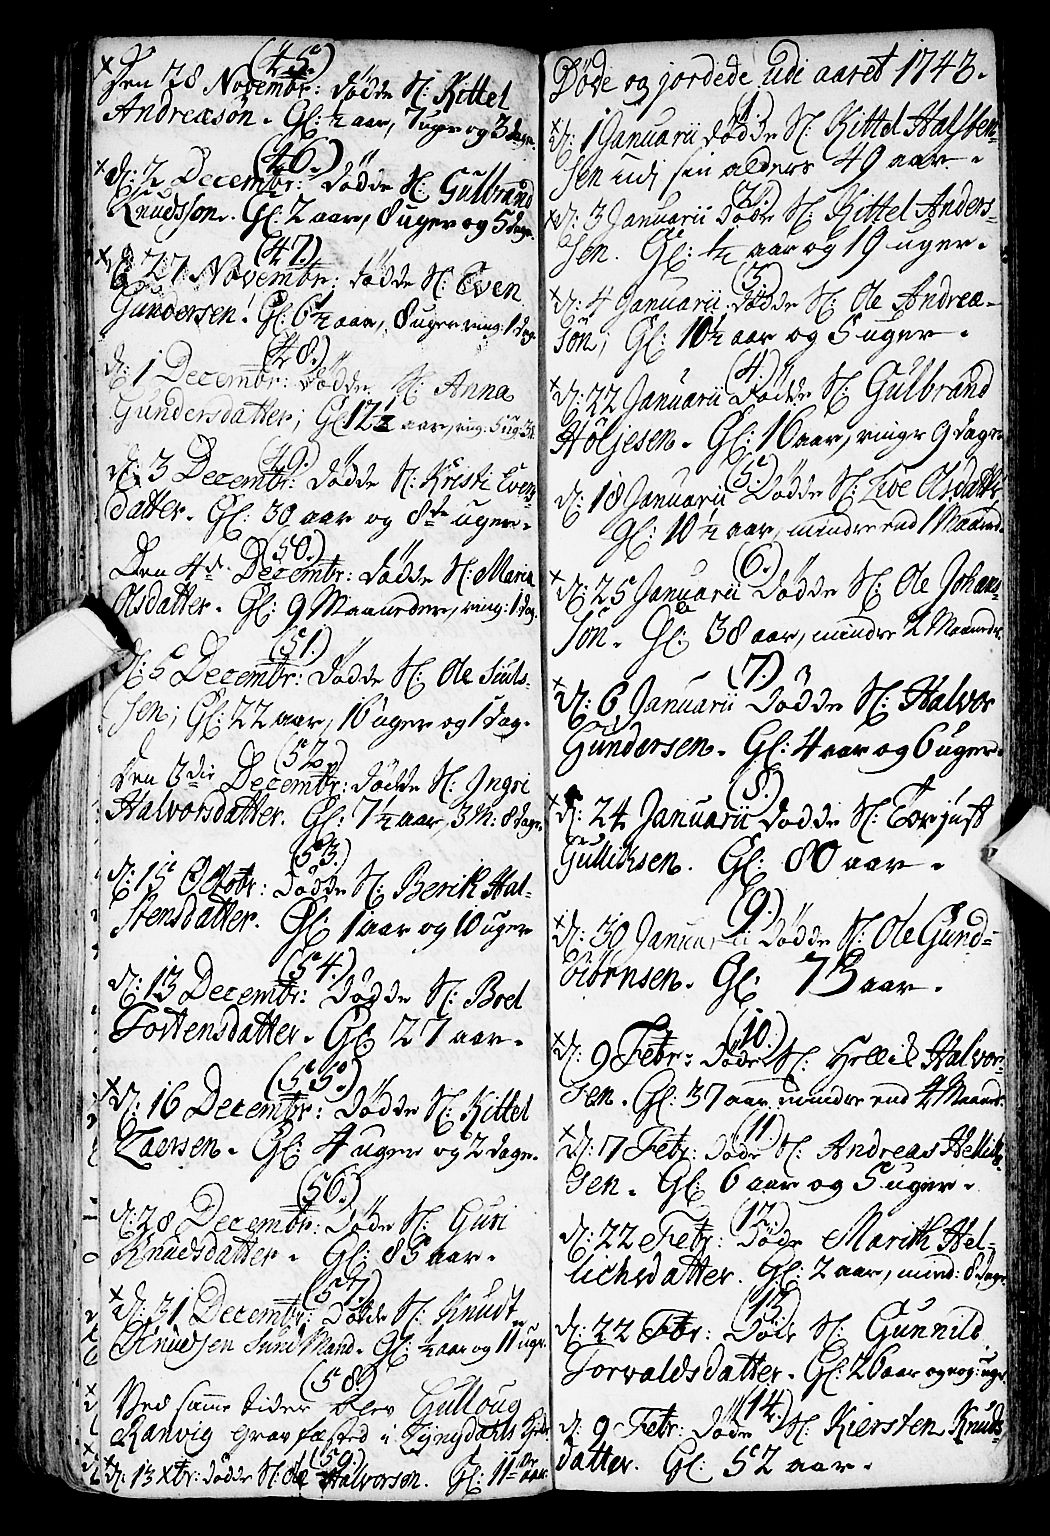 (45.)
Den 28 Novembr: Dödde N: Kittel
Andreæsøn. Gl: ½ aar, 7 uger og 3 dage.
(46.)
D: 2 Decembr: Dödde N: Gulbrand
Knudssøn. Gl: 2 aar, 8 uger og 5 dage.
(47.)
D: 27 Novembr: Dödde N: Even
Gundersen. Gl: 6½ aar, 8 uger ring: 1 dag.
(48.)
D: 1 Decembr: Dödde N: Anna
Gundersdatter; Gl: 12½ aar, ring: 5 ug:
(49.)
D: 3 Decembr: Dödde N: Kristi Evens
datter. Gl: 30 aar og 8te uger.
(50.)
Den 4de Decembr: Dödde N: Maria
Olsdatter. Gl: 9 Maaneder, ring: 1 dag.
(51.)
D: 5 Decembr: Dödde N: Ole
sen; Gl: 22 aar, 16 uger og 1 dag.
(52.)
Den 6die Decembr: Dödde N: Ingri
Halvorsdatter. Gl: 7½ aar, 3 M: 8 dage.
(53.)
D: 15 Octobr: Dödde N: Berith Hal-
stensdatter. Gl: 1 aar og 10 uger
(54.)
D: 13 Decembr: Dödde N: Boel
Torstensdatter. Gl: 27 aar.
(55.)
D: 16 Decembr: Dödde N: Kittel
Laersen. Gl: 4 uger og 2 dage.
(56.)
D: 28 Decembr: Döde N: Guri
Knudsdatter. Gl: 85 aar.
(57.)
D: 31 Decembr: Dödde N: Knudt
Knudsen Gl: ½ aar og 11 uger.
(58.)
Ved samme tider blev Gulloug
Ranvig gravfæsted i
(59.)
D: 13 Xbr: Dödde N: Ole Halvorsen. Gl: 11 aar.
Döde og jordede Udi aaret 1743.
(1.)
D: 1 Januarii Dödde N: Kittel Halsten-
sen udi sin alders 49 aar.
(2.)
D: 3 Januarii Döde N: Kittel Anders-
sen. Gl: ½ aar og 19 uger.
(3.)
D: 4 Januarii Dödde N: Ole Andreæ-
søn; Gl: 10½ aar og 5 uger.
(4.)
D: 22 Januarii Dödde N: Gulbrand
Höljesen. Gl: 16 aar, ringr 9 dage.
(5.)
D: 18 Januarii Dödde N: Live Olsdatter
Gl: 10½ aar, mindre end 1 Maaned.
(6.)
D: 25 Januarii Dödde N: Ole Johan-
søn. Gl: 38 aar, mindre 2 Maaneder.
(7.)
D: 6 Januarii Dödde N: Halvor
Gundersen. Gl: 4 aar og 6 uger.
(8.)
D: 24 Januarii Dödde N: Torjust
Gulliksen. Gl: 80 aar.
(9.)
D: 30 Januarii Dödde N: Ole Gund-
biörnsen. Gl: 73 aar.
(10.)
D: 9 Febr: Döde N: Hellik Halvor-
sen. Gl: 37 aar mindre end 4 Maaned:
(11.)
D: 7 Febr: Döde N: Andreas Hellik-
sen. Gl: 6 aar og 5 uger.
(12.)
D: 22 Febr: Döde Marith Hel-
lichsdatter. Gl: 2 aar, mind: 8 dage.
(13.)
D: 22 Febr: Döde N: Gunnild
Torvaldsdatter. Gl: 26 aar og nog: uger
(14.)
D: 9 Febr: Döde N: Kiersten Knuds-
datter. Gl: 52 aar.